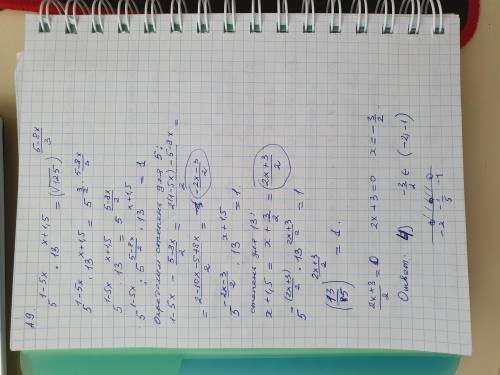 А9. 5^{1-5x} · 13^{x+1,5} = (√125)^{\frac{5-8x}{3}}
5^{1-5x} · 13^{x+1,5} = 5^{\frac{3}{2} · \frac{5-8x}{3}}
5^{1-5x} · 13^{x+1,5} = 5^{\frac{5-8x}{2}}
5^{1-5x} : 5^{\frac{5-8x}{2}} · 13^{x+1,5} = 1
степень для 5:
1-5x - \frac{5-8x}{2} = \frac{2(1-5x)-5-8x}{2} =
= \frac{2-10x-5+8x}{2} = \frac{-2x-3}{2}
5^{\frac{-2x-3}{2}} · 13^{x+1,5} = 1.
степень для 13:
x+1,5 = x+\frac{3}{2} = \frac{2x+3}{2}
5^{-\frac{(2x+3)}{2}} · 13^{\frac{2x+3}{2}} = 1
= 1.
\frac{2x+3}{2} = 0 2x+3=0 x=-\frac{3}{2}.
Ответ: 4) -\frac{3}{2} ∈ (-2;-1)